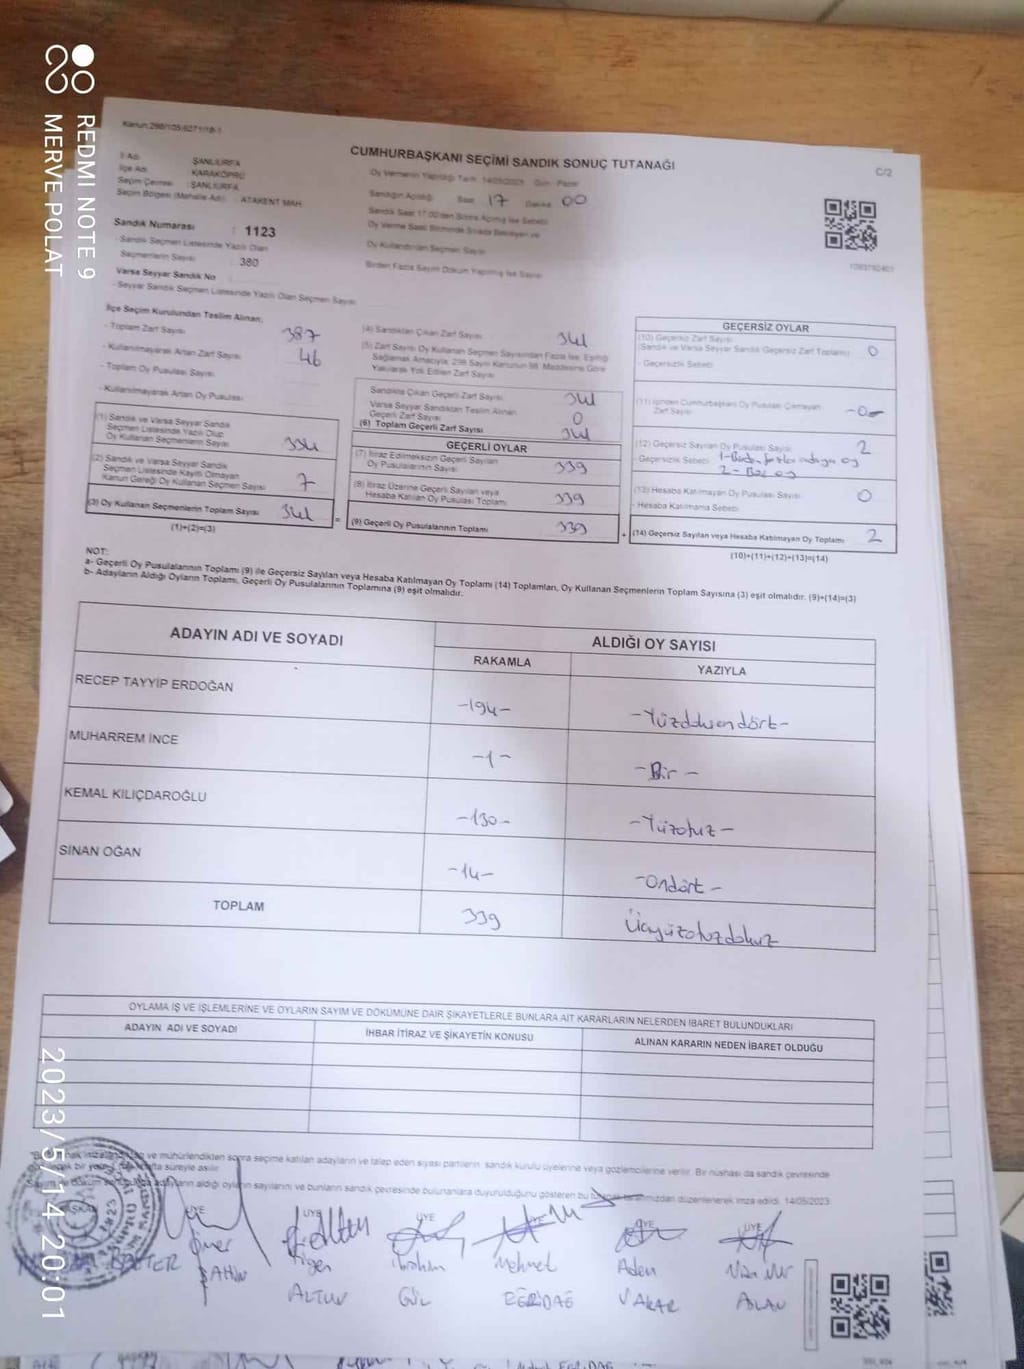 Kanun:298/105;6271/18-1
CUMHURBAŞKANI SEÇİMİ SANDIK SONUÇ TUTANAĞI
C/2
İl Adı : ŞANLIURFA
İlçe Adı : KARAKÖPRÜ
Seçim Çevresi : ŞANLIURFA
Seçim Bölgesi (Mahalle Adı) : ATAKENT MAH.
Oy Vermenin Yapıldığı Tarih 14/05/2023 Gün Pazar
Sandığın Açıldığı Saat 17 Dakika 00
Sandık Saat 17.00'den Sonra Açılmış İse Sebebi
Oy Verme Saati Bitiminde Sırada Bekleyen ve
Oy Kullandırılan Seçmen Sayısı
Birden Fazla Sayım Döküm Yapılmış İse Sayısı
Sandık Numarası : 1123
- Sandık Seçmen Listesinde Yazılı Olan
Seçmenlerin Sayısı : 380
Varsa Seyyar Sandık No
- Seyyar Sandık Seçmen Listesinde Yazılı Olan Seçmen Sayısı
İlçe Seçim Kurulundan Teslim Alınan;
- Toplam Zarf Sayısı 387
- Kullanılmayarak Artan Zarf Sayısı 46
- Toplam Oy Pusulası Sayısı
- Kullanılmayarak Artan Oy Pusulası
(1) Sandık ve Varsa Seyyar Sandık
Seçmen Listesinde Yazılı Olup
Oy Kullanan Seçmenlerin Sayısı 334
(2) Sandık ve Varsa Seyyar Sandık
Seçmen Listesinde Kayıtlı Olmayan
Kanun Gereği Oy Kullanan Seçmen Sayısı 7
(3) Oy Kullanan Seçmenlerin Toplam Sayısı 341
(1)+(2)=(3)
(4) Sandıktan Çıkan Zarf Sayısı 341
(5) Zarf Sayısı Oy Kullanan Seçmen Sayısından Fazla İse, Eşitliği
Sağlamak Amacıyla; 298 Sayılı Kanunun 98. Maddesine Göre
Yakılarak Yok Edilen Zarf Sayısı
Sandıkta Çıkan Geçerli Zarf Sayısı 341
Varsa Seyyar Sandıktan Teslim Alınan
Geçerli Zarf Sayısı 0
(6) Toplam Geçerli Zarf Sayısı 341
GEÇERLİ OYLAR
(7) İtiraz Edilmeksizin Geçerli Sayılan
Oy Pusulalarının Sayısı 339
(8) İtiraz Üzerine Geçerli Sayılan veya
Hesaba Katılan Oy Pusulası Toplamı 339
= (9) Geçerli Oy Pusulalarının Toplamı 339 +
GEÇERSİZ OYLAR
(10) Geçersiz Zarf Sayısı
(Sandık ve Varsa Seyyar Sandık Geçersiz Zarf Toplamı) 0
- Geçersizlik Sebebi
(11) İçinden Cumhurbaşkanı Oy Pusulası Çıkmayan
Zarf Sayısı -0-
(12) Geçersiz Sayılan Oy Pusulası Sayısı 2
- Geçersizlik Sebebi 1-
2- Boş oy
(13) Hesaba Katılmayan Oy Pusulası Sayısı 0
- Hesaba Katılmama Sebebi
(14) Geçersiz Sayılan veya Hesaba Katılmayan Oy Toplamı 2
(10)+(11)+(12)+(13)=(14)
NOT:
a- Geçerli Oy Pusulalarının Toplamı (9) ile Geçersiz Sayılan veya Hesaba Katılmayan Oy Toplamı (14) Toplamları, Oy Kullanan Seçmenlerin Toplam Sayısına (3) eşit olmalıdır. (9)+(14)=(3)
b- Adayların Aldığı Oyların Toplamı, Geçerli Oy Pusulalarının Toplamına (9) eşit olmalıdır.
ADAYIN ADI VE SOYADI
ALDIĞI OY SAYISI
RAKAMLA YAZIYLA
RECEP TAYYİP ERDOĞAN -194- -Yüzddoksandört-
MUHARREM İNCE -1- -Bir-
KEMAL KILIÇDAROĞLU -130- -Yüzotuz-
SİNAN OĞAN -14- -Ondört-
TOPLAM 339 Üçyüzotuzdokuz
OYLAMA İŞ VE İŞLEMLERİNE VE OYLARIN SAYIM VE DÖKÜMÜNE DAİR ŞİKAYETLERLE BUNLARA AİT KARARLARIN NELERDEN İBARET BULUNDUKLARI
ADAYIN ADI VE SOYADI İHBAR İTİRAZ VE ŞİKAYETİN KONUSU ALINAN KARARIN NEDEN İBARET OLDUĞU
ve mühürlendikten sonra seçime katılan adayların ve talep eden siyasi partilerin, sandık kurulu üyelerine veya gözlemcilerine verilir. Bir nüshası da sandık çevresinde
süreyle asılır.
adayların aldığı oyların sayılarını ve bunların sandık çevresinde bulunanlara duyurulduğunu gösteren bu tutanak tarafımızdan düzenlenerek imza edildi. 14/05/2023
ÜYE ÜYE ÜYE ÜYE ÜYE
Ömer İbrahim Mehmet Aden
ŞAHİN ALTUN GÜL ZERİDAĞ VAKAR ASLAN
REDMI NOTE 9
MERVE POLAT
2023/5/14 20:01